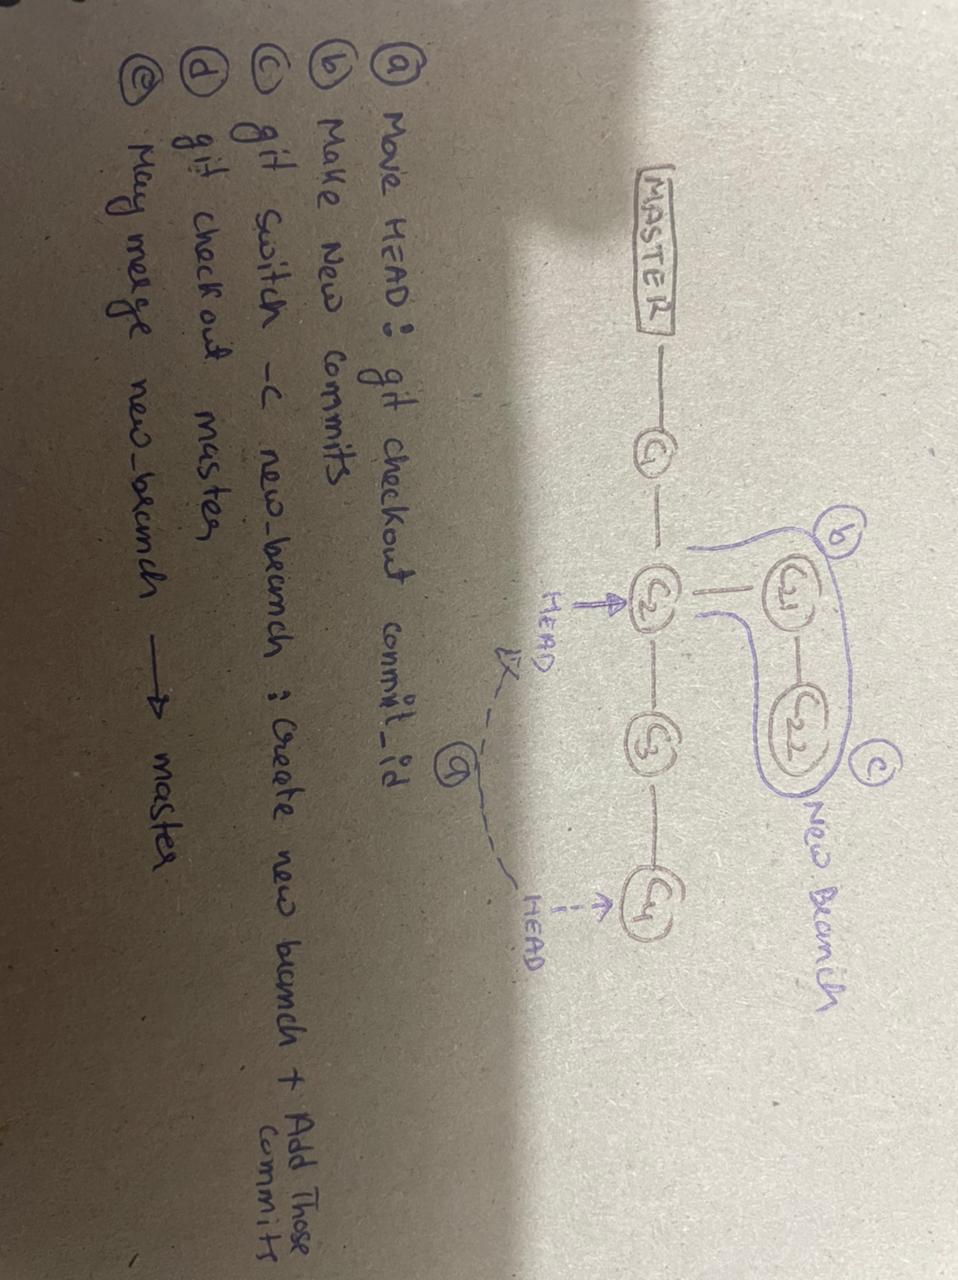 b
c
New Branch
C21
C22
MASTER
C1
C2
C3
C4
HEAD
HEAD
a
a Move HEAD : git checkout commit_id
b Make New commits
c git switch -c new_branch : create new branch + Add Those
commits
d git checkout master
e May merge new_branch → master